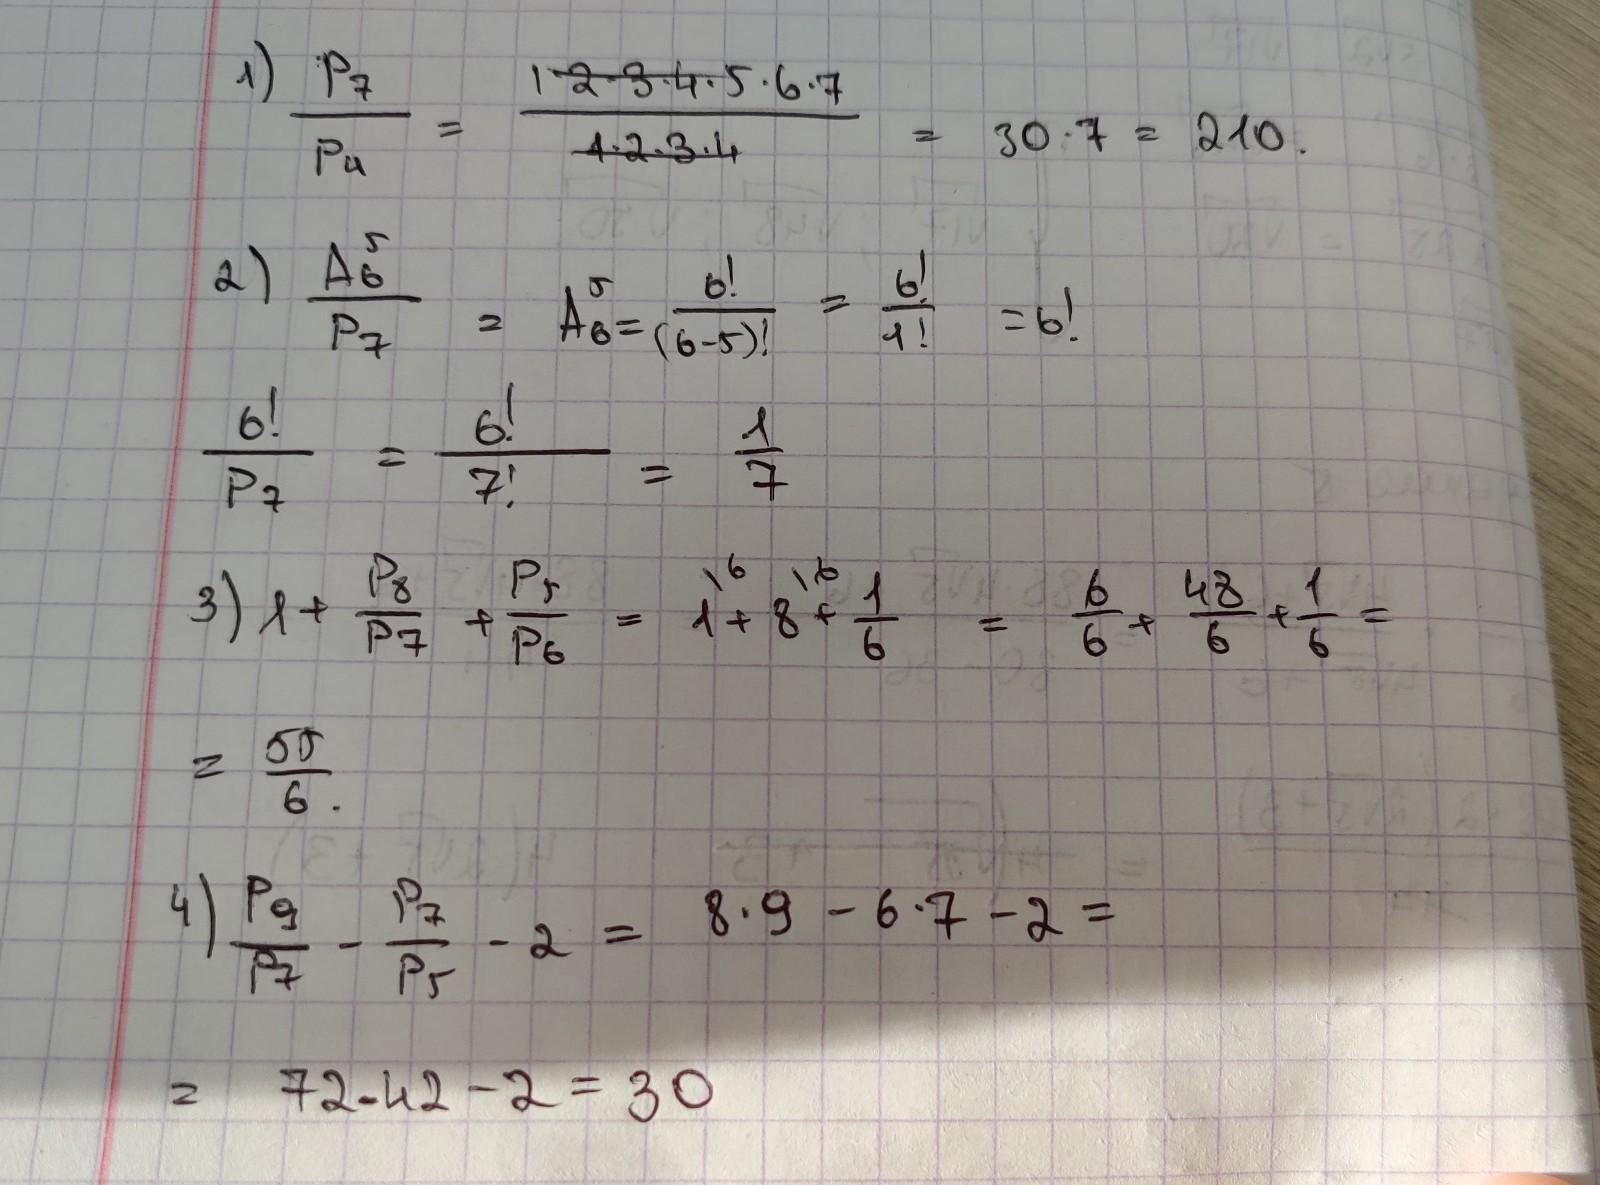 1) P₇/P₄ = 1·2·3·4·5·6·7/1·2·3·4 = 30·7 = 210.
2) A₆⁵/P₇ = A₆⁵ = 6!/(6-5)! = 6!/1! = 6!
6!/P₇ = 6!/7! = 1/7
3) 1 + P₈/P₇ + P₅/P₆ = 1\⁶ + 8\⁶ + 1/6 = 6/6 + 48/6 + 1/6 =
= 55/6.
4) P₉/P₇ - P₇/P₅ - 2 = 8·9 - 6·7 - 2 =
= 72-42-2 = 30